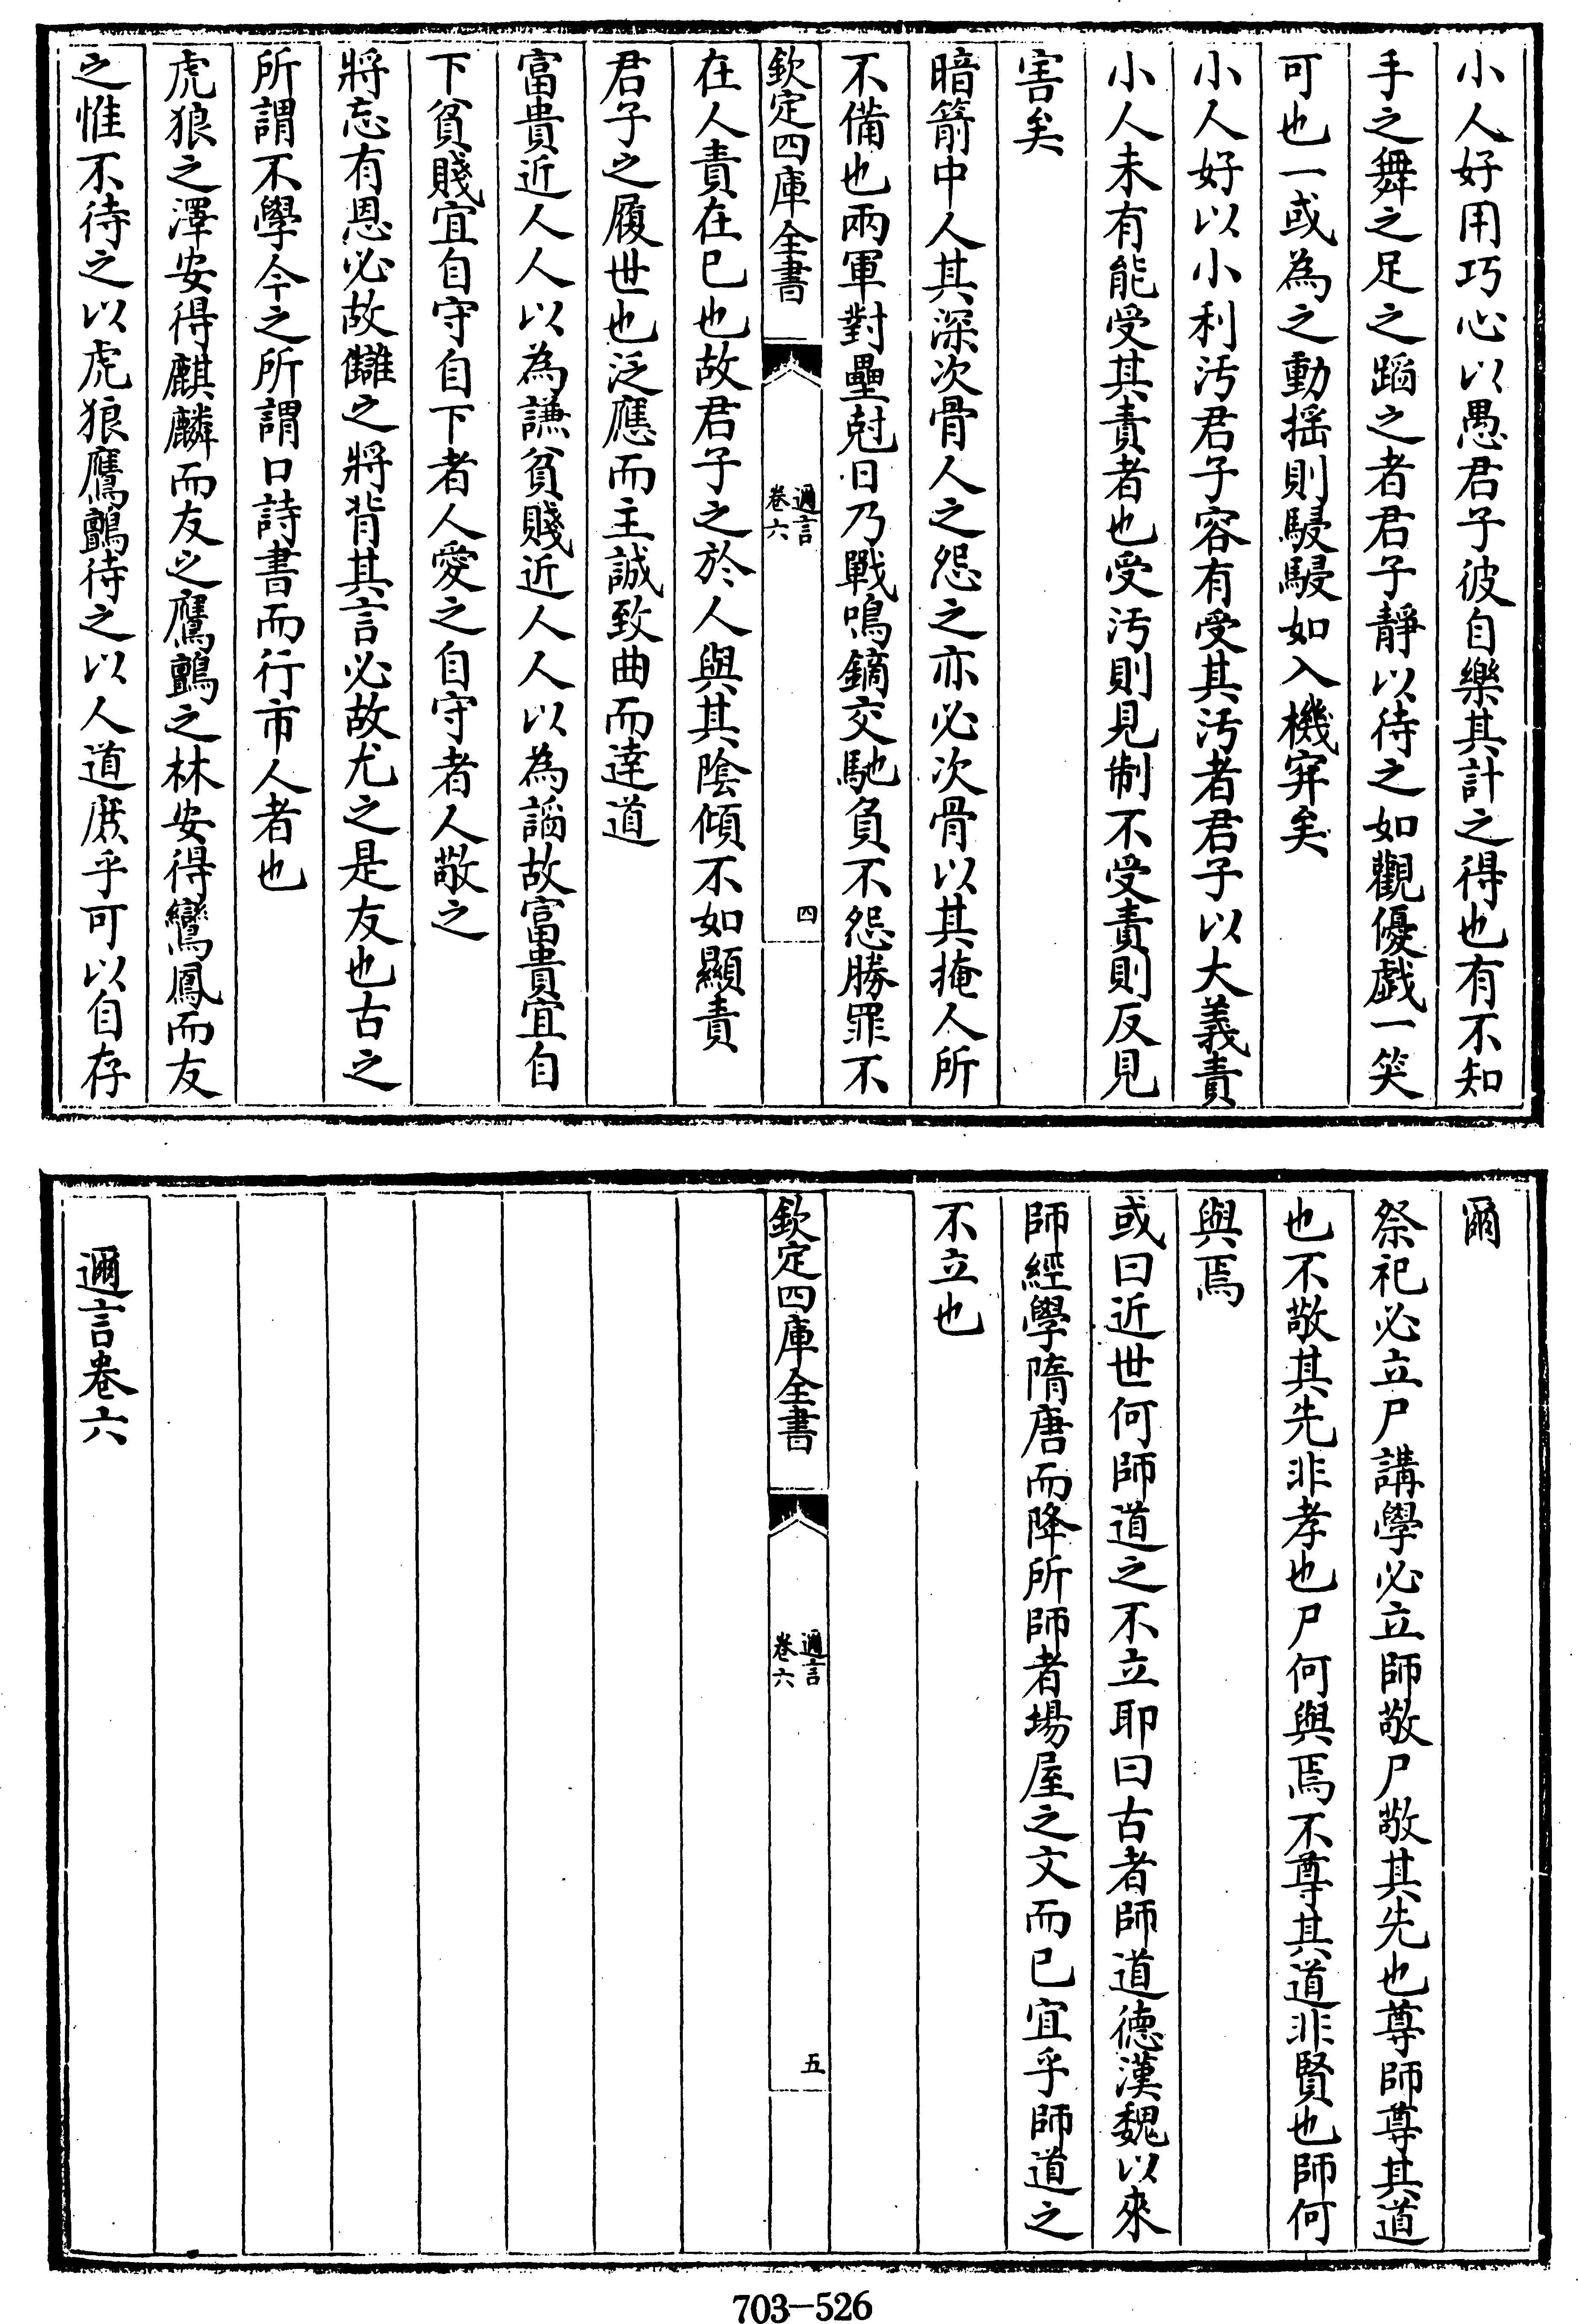 小人好用巧心以愚君子彼自樂其計之得也有不知
手之舞之足之蹈之者君子靜以待之如觀優戲一笑
可也一或為之動揺則駸駸如入機穽矣
小人好以小利汚君子容有受其汚者君子以大義責
小人未有能受其責者也受汚則見制不受責則反見
害矣
暗箭中人其深次骨人之怨之亦必次骨以其掩人所
不備也兩軍對壘尅日乃戰鳴鏑交馳負不怨勝罪不
欽定四庫全書
邇言
卷六
四
在人責在已也故君子之於人與其陰傾不如顯責
君子之履世也泛應而主誠致曲而達道
富貴近人人以為謙貧賤近人人以為謟故富貴宜自
下貧賤宜自守自下者人愛之自守者人敬之
將忘有恩必故讎之將背其言必故尤之是友也古之
所謂不學今之所謂口詩書而行市人者也
虎狼之澤安得麒麟而友之鷹鸇之林安得鸞鳳而友
之惟不待之以虎狼鷹鸇待之以人道庶乎可以自存
爾
祭祀必立尸講學必立師敬尸敬其先也尊師尊其道
也不敬其先非孝也尸何與焉不尊其道非賢也師何
與焉
或曰近世何師道之不立耶曰古者師道德漢魏以來
師經學隋唐而降所師者場屋之文而已宜乎師道之
不立也
欽定四庫全書
邇言
卷六
五
邇言卷六
703-526